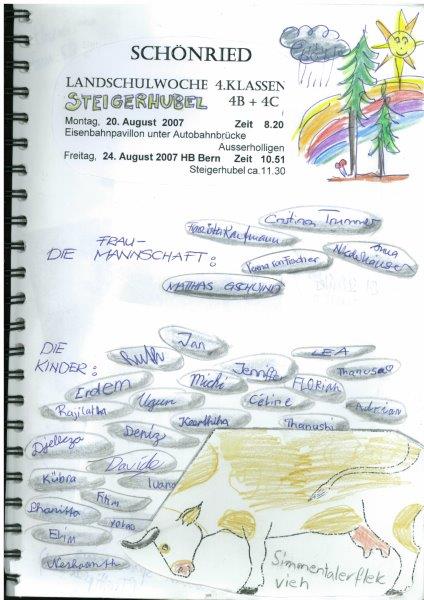 SCHÖNRIED
LANDSCHULWOCHE 4.KLASSEN
STEIGERHUBEL 4B + 4C
Montag, 20. August 2007 Zeit 8.20
Eisenbahnpavillon unter Autobahnbrücke
Ausserholligen
Freitag, 24. August 2007 HB Bern Zeit 10.51
Steigerhubel ca.11.30
Cristina Trummer
Kaufmann
DIE FRAU-
MANNSCHAFT:
Anna
von Fischer
MATHIAS GSCHWIND
DIE
KINDER:
Jan
Ruth
LEA
Jennifer
Thanusa
Erdem
Michi
FLORIAN
Rajilatha
Ugur
Céline
Adrian
Keerthiha
Thanushi
Djelleza
Deniz
Davide
Kübra
Ivana
Fitim
Elim
Simmentalerflek
vieh